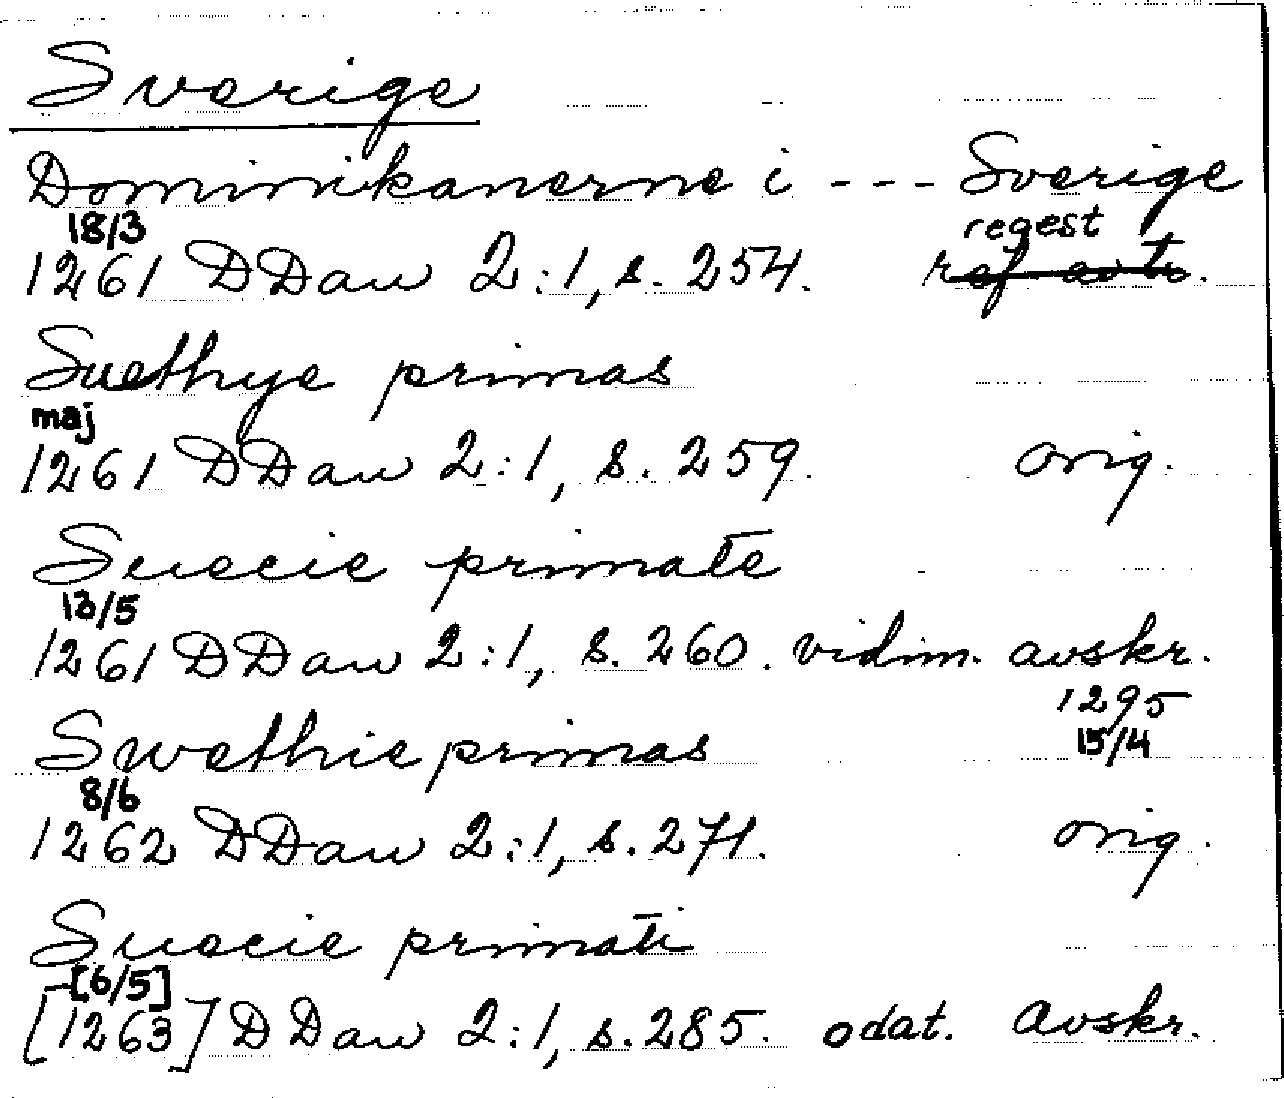 Sverige
Dominikanerne i - - - Sverige
18/3 regest
1261 DDan 2:1, s. 254. ref avtr.
Suethye primas
maj
1261 DDan 2:1, s. 259. orig.
Suecie primate
13/5
1261 DDan 2:1, s. 260. vidim. avskr.
1295
Swethie primas 15/4
8/6
1262 DDan 2:1, s. 271. orig.
Suecie primati
[6/5]
[1263] DDan 2:1, s. 285. odat. avskr.